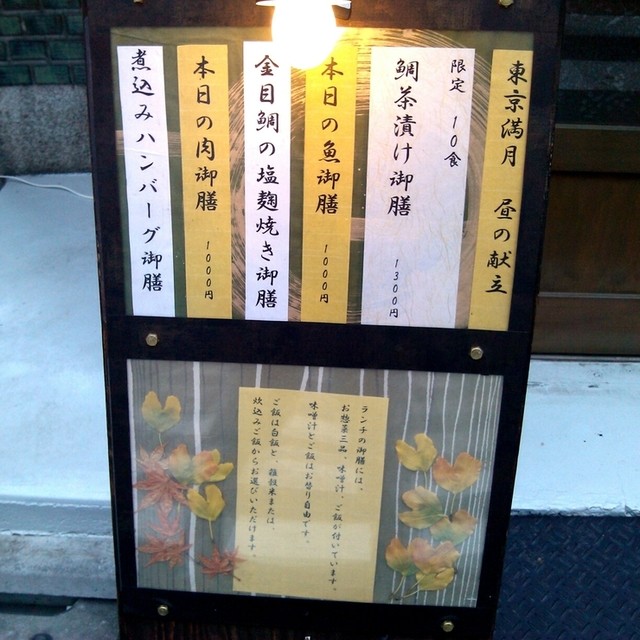 東京満月 昼の献立
限定 10食
鯛茶漬け御膳 1300円
本日の魚御膳 1000円
金目鯛の塩麹焼き御膳
本日の肉御膳 1000円
煮込みハンバーグ御膳
ランチの御膳には、
お惣菜三品、味噌汁、ご飯が付いています。
味噌汁とご飯はお替り自由です。
ご飯は白飯と、雑穀米または、
炊込みご飯からお選びいただけます。